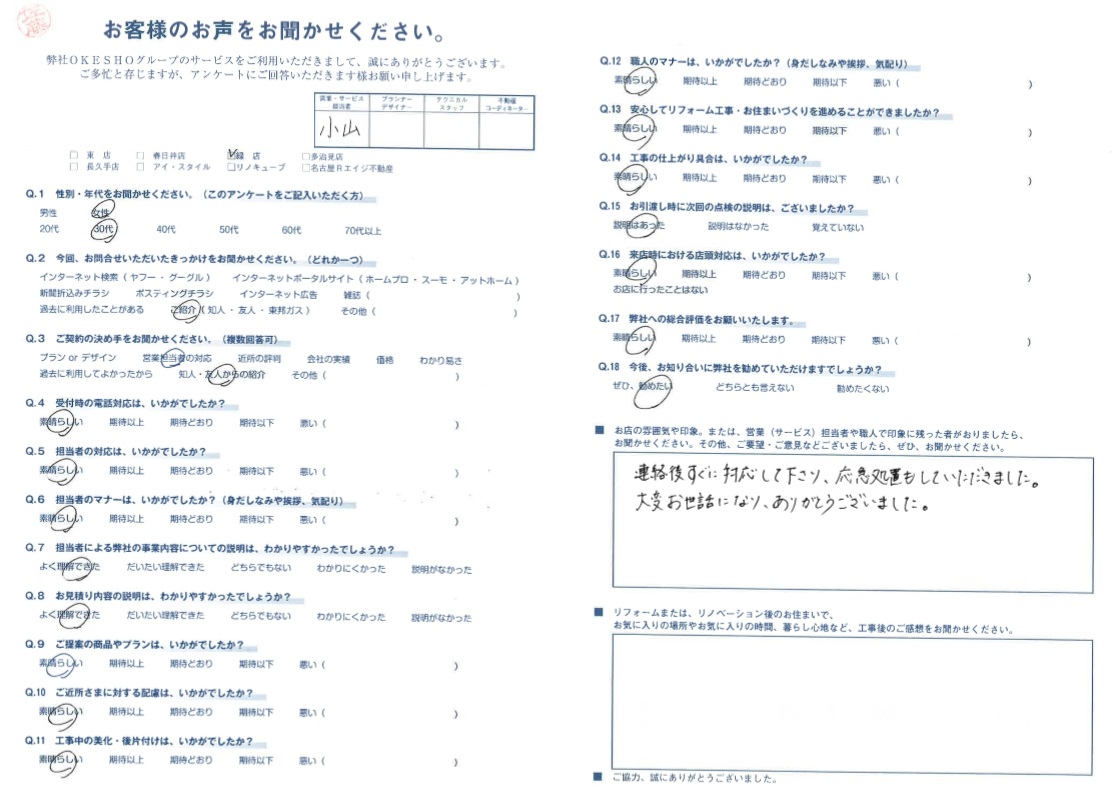 お客様のお声をお聞かせください。
弊社OKESHOグループのサービスをご利用いただきまして、誠にありがとうございます。
ご多忙と存じますが、アンケートにご回答いただきます様お願い申し上げます。
営業・サービス担当者 プランナーデザイナー テクニカルスタッフ 不動産コーディネーター
小山
□ 東 店 □ 春日井店 ☑緑 店 □多治見店
□ 長久手店 □ アイ・スタイル □リノキューブ □名古屋Rエイジ不動産
Q.1 性別・年代をお聞かせください。（このアンケートをご記入いただく方）
男性 女性
20代 30代 40代 50代 60代 70代以上
Q.2 今回、お問合せいただいたきっかけをお聞かせください。（どれか一つ）
インターネット検索（ ヤフー・グーグル ） インターネットポータルサイト（ ホームプロ・スーモ・アットホーム ）
新聞折込みチラシ ポスティングチラシ インターネット広告 雑誌（ ）
過去に利用したことがある ご紹介（ 知人・友人・東邦ガス ） その他（ ）
Q.3 ご契約の決め手をお聞かせください。（複数回答可）
プラン or デザイン 営業担当者の対応 近所の評判 会社の実績 価格 わかり易さ
過去に利用してよかったから 知人・友人からの紹介 その他（ ）
Q.4 受付時の電話対応は、いかがでしたか？
素晴らしい 期待以上 期待どおり 期待以下 悪い（ ）
Q.5 担当者の対応は、いかがでしたか？
素晴らしい 期待以上 期待どおり 期待以下 悪い（ ）
Q.6 担当者のマナーは、いかがでしたか？（身だしなみや挨拶、気配り）
素晴らしい 期待以上 期待どおり 期待以下 悪い（ ）
Q.7 担当者による弊社の事業内容についての説明は、わかりやすかったでしょうか？
よく理解できた だいたい理解できた どちらでもない わかりにくかった 説明がなかった
Q.8 お見積り内容の説明は、わかりやすかったでしょうか？
よく理解できた だいたい理解できた どちらでもない わかりにくかった 説明がなかった
Q.9 ご提案の商品やプランは、いかがでしたか？
素晴らしい 期待以上 期待どおり 期待以下 悪い（ ）
Q.10 ご近所さまに対する配慮は、いかがでしたか？
素晴らしい 期待以上 期待どおり 期待以下 悪い（ ）
Q.11 工事中の美化・後片付けは、いかがでしたか？
素晴らしい 期待以上 期待どおり 期待以下 悪い（ ）
Q.12 職人のマナーは、いかがでしたか？（身だしなみや挨拶、気配り）
素晴らしい 期待以上 期待どおり 期待以下 悪い（ ）
Q.13 安心してリフォーム工事・お住まいづくりを進めることができましたか？
素晴らしい 期待以上 期待どおり 期待以下 悪い（ ）
Q.14 工事の仕上がり具合は、いかがでしたか？
素晴らしい 期待以上 期待どおり 期待以下 悪い（ ）
Q.15 お引渡し時に次回の点検の説明は、ございましたか？
説明はあった 説明はなかった 覚えていない
Q.16 来店時における店頭対応は、いかがでしたか？
素晴らしい 期待以上 期待どおり 期待以下 悪い（ ）
お店に行ったことはない
Q.17 弊社への総合評価をお願いいたします。
素晴らしい 期待以上 期待どおり 期待以下 悪い（ ）
Q.18 今後、お知り合いに弊社を勧めていただけますでしょうか？
ぜひ、勧めたい どちらとも言えない 勧めたくない
■ お店の雰囲気や印象。または、営業（サービス）担当者や職人で印象に残った者がおりましたら、
お聞かせください。その他、ご要望・ご意見などございましたら、ぜひ、お聞かせください。
連絡後すぐに対応して下さり、応急処置もしていただきました。
大変お世話になり、ありがとうございました。
■ リフォームまたは、リノベーション後のお住まいで、
お気に入りの場所やお気に入りの時間、暮らし心地など、工事後のご感想をお聞かせください。
■ ご協力、誠にありがとうございました。